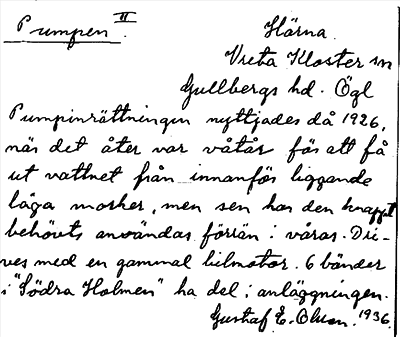 Pumpen II.
Härna.
Vreta Kloster sn
Gullbergs hd. Ögl
Pumpinrättningen nyttjades då 1926,
när det åter var våtår för att få
ut vattnet från innanför liggande
låga marker, men sen har den knappt
behövts användas förrän i våras. Dri-
ves med en gammal bilmotor. 6 bönder
i "Södra Holmen" ha del i anläggningen.
Gustaf E. Olsson. 1936.